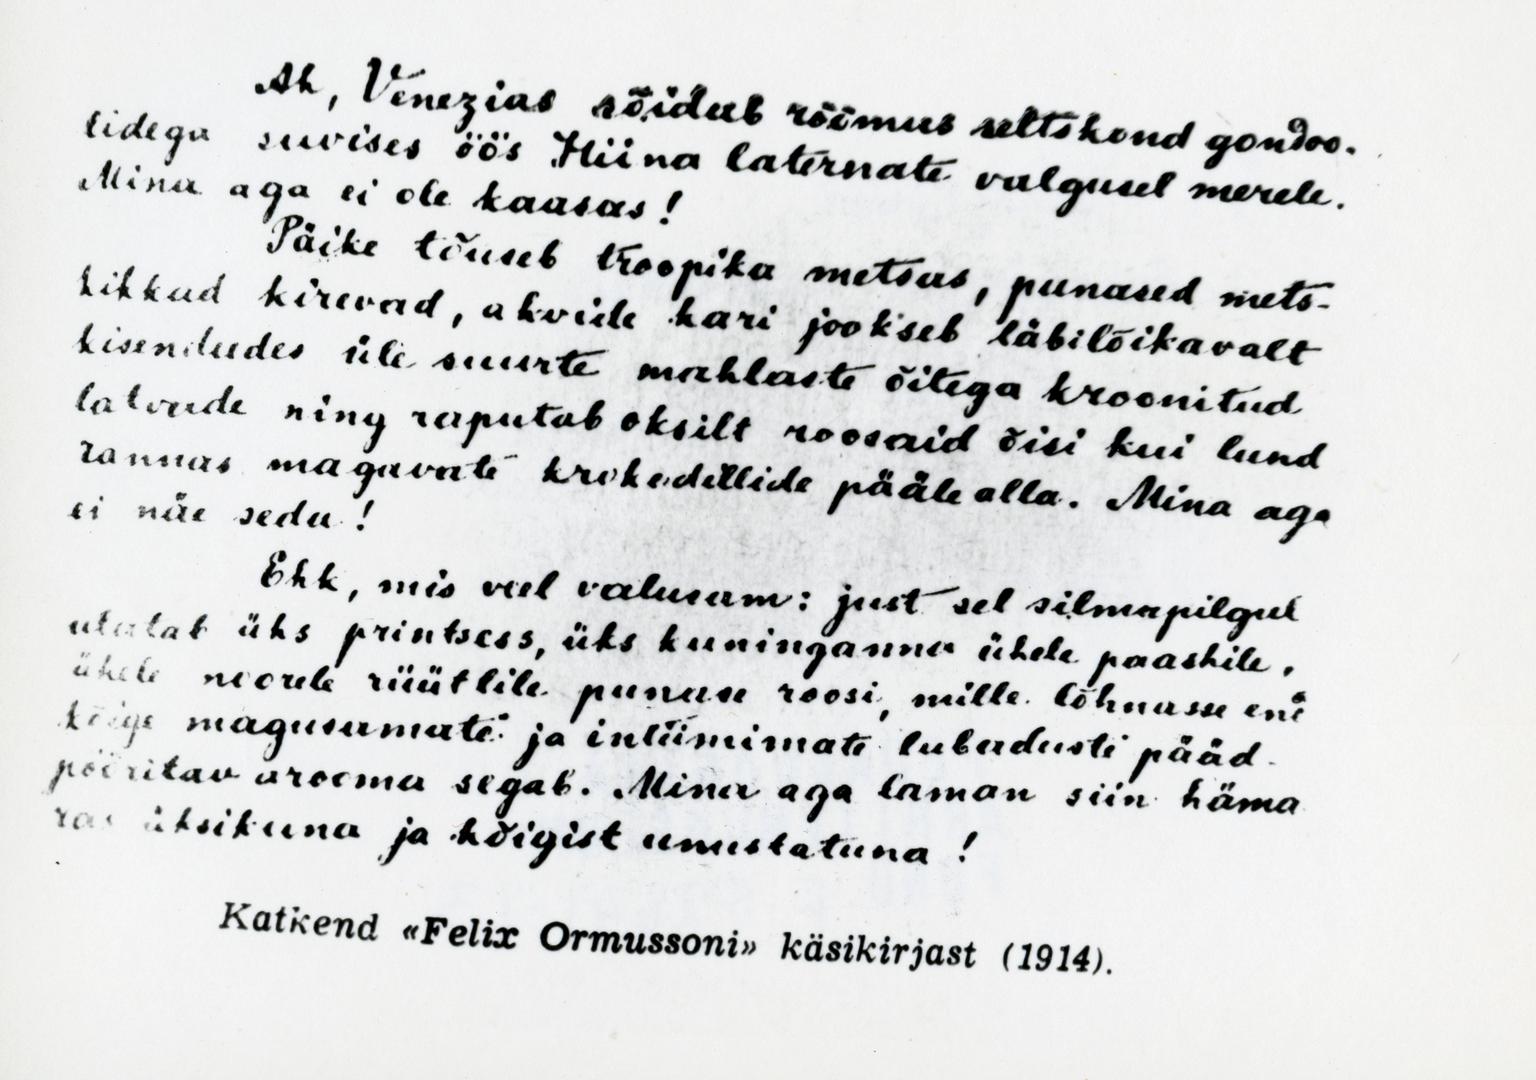 Ah, Venezias sõidab rõõmus seltskond gondoo-
lidega suvises öös Hiina laternate valgusel merele.
Mina aga ei ole kaasas!
Päike tõuseb troopika metsas, punased mets-
kikkad kirevad, ahvide kari jookseb läbilõikavalt
kisendades üle suurte mahlaste õitega kroonitud
latvade ning raputab oksilt roosaid õisi kui lund
rannas magavate krokodillide pääle alla. Mina aga
ei näe seda!
Ehk, mis veel valusam: just sel silmapilgul
ulatab üks printsess, üks kuninganna ühele paashile,
ühele noorele rüütlile punase roosi, mille lõhnasse end
kõige magusamate ja intiimimate lubaduste pääd-
pööritav arooma segab. Mina aga laman siin häma
ras üksikuna ja kõigist unustatuna!
Katkend «Felix Ormussoni» käsikirjast (1914).